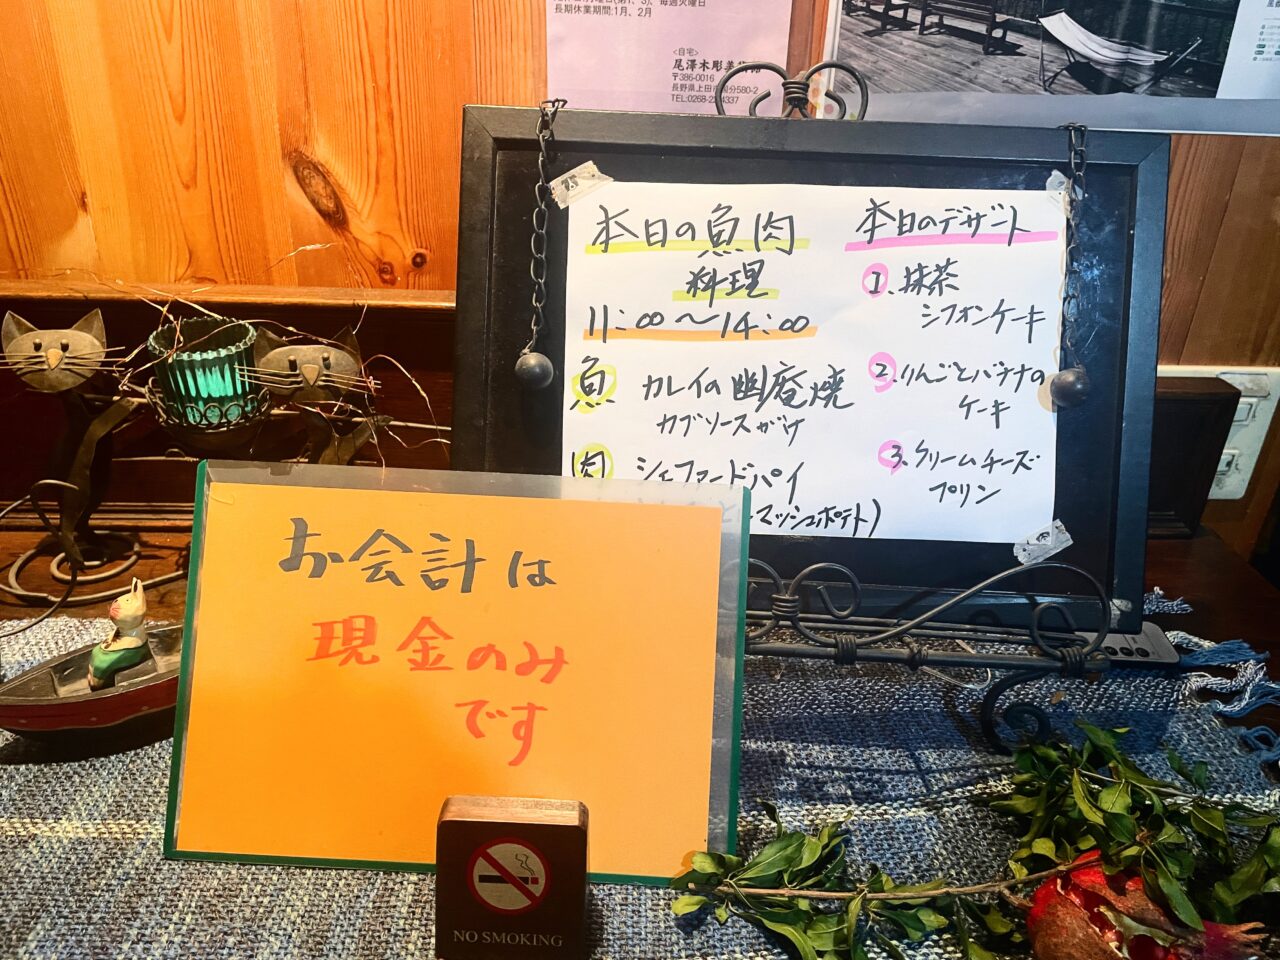 長期休業期間:1月、2月
<自宅>
尾澤木彫美術館
〒386-0016
長野県上田市国分580-2
本日の魚肉
料理
11:00〜14:00
魚 カレイの幽庵焼
カブソースがけ
肉 シェファードパイ
マッシュポテト)
本日のデザート
1. 抹茶
シフォンケーキ
2. りんごとバナナの
ケーキ
3. クリームチーズ
プリン
お会計は
現金のみ
です
NO SMOKING